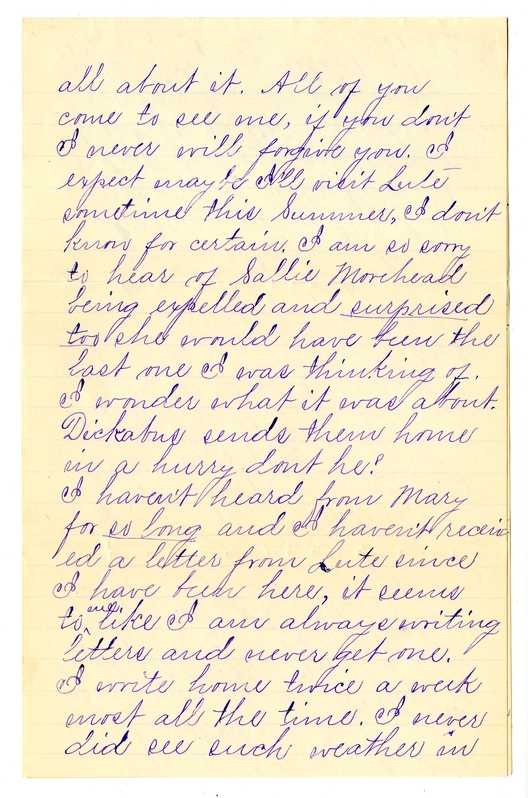 all about it. All of you
come to see me, if you don't
I never will forgive you. I
expect maybe I'll visit Lute
sometime this Summer, I don't
know for certain. I am so sorry
to hear of Sallie Morehead
being expelled and surprised
too she would have been the
last one I was thinking of.
I wonder what it was about.
Dickabus sends them home
in a hurry dont he?
I haven't heard from Mary
for so long and I haven't receiv
ed a letter from Lute since
I have been here, it seems
to me like I am always writing
letters and never get one.
I write home twice a week
most all the time. I never
did see such weather in